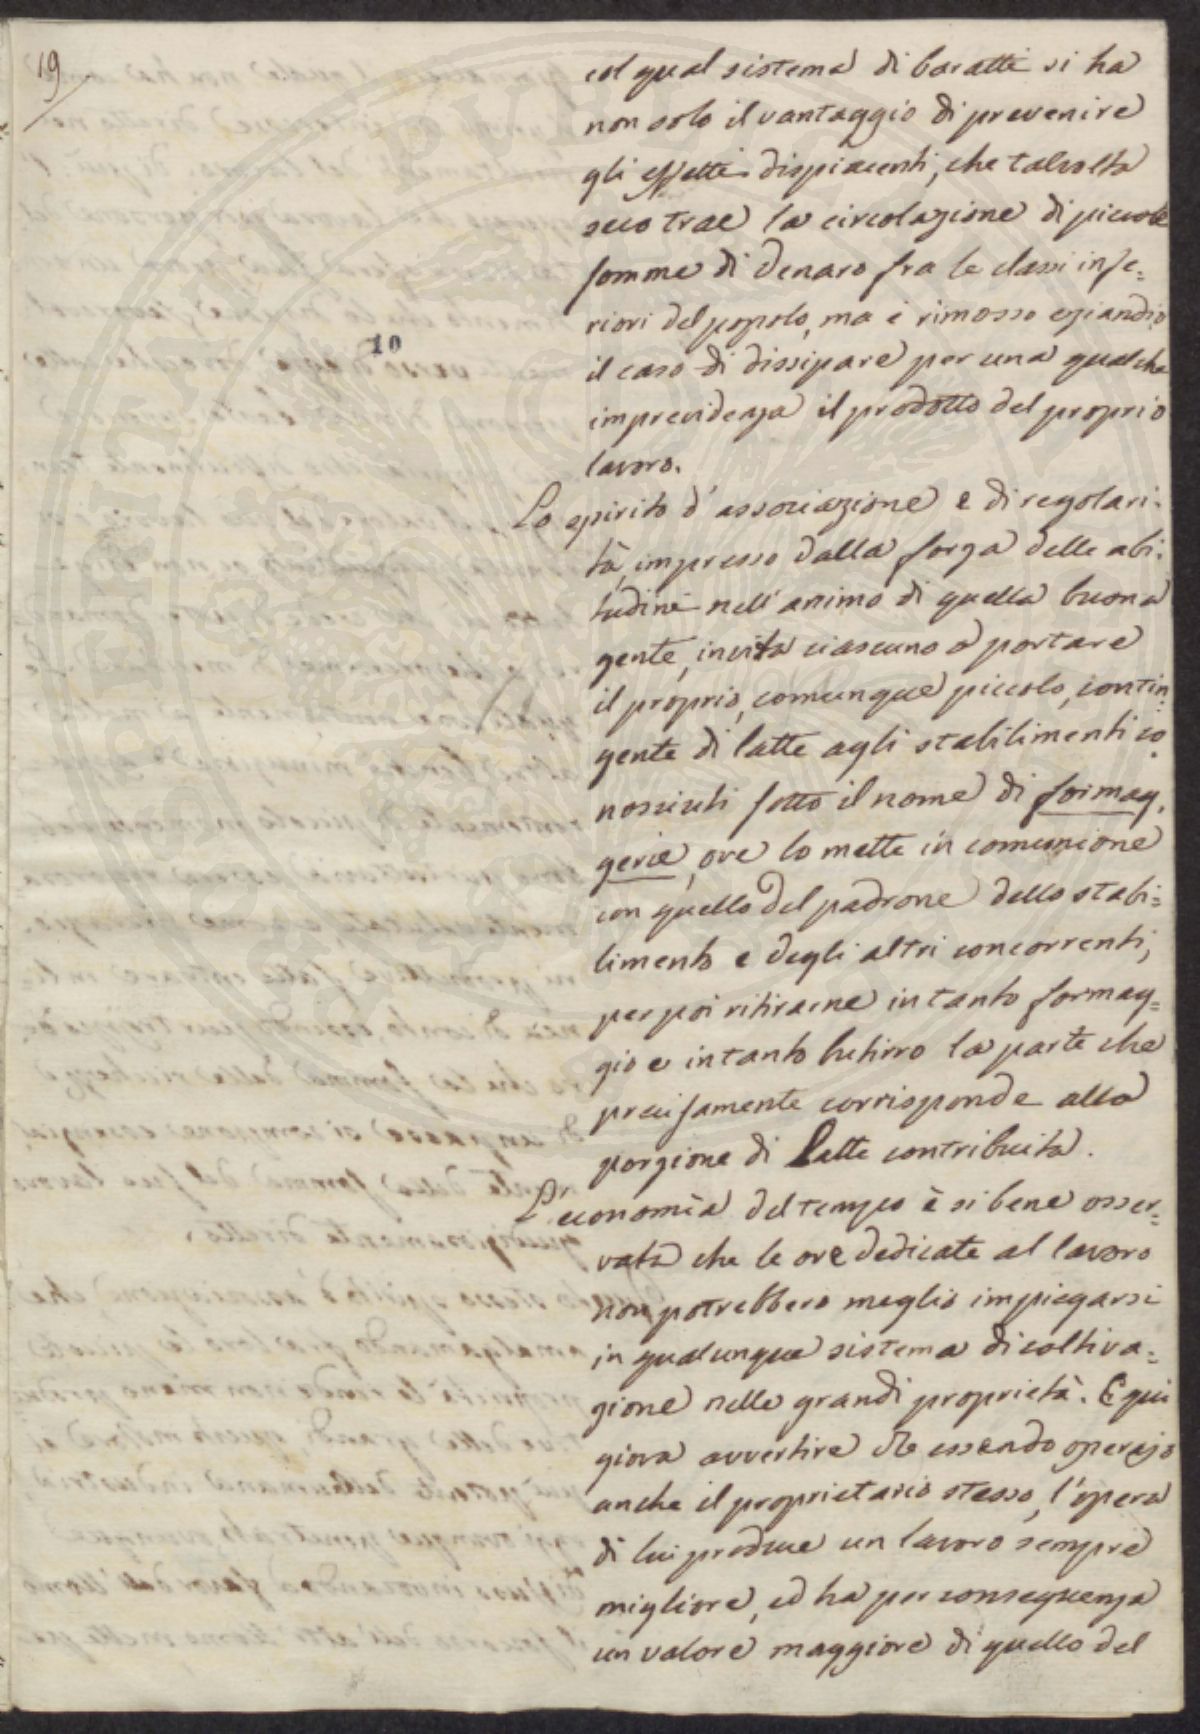 19
col qual sistema di baratti si ha
non solo il vantaggio di prevenire
gli effetti dispiacenti, che talvolta
seco trae la circolazione di piccole
somme di denaro fra le classi infe=
riori del popolo, ma è rimosso eziandio
10
il caso di dissipare per una qualche
imprevidenza il prodotto del proprio
lavoro.
Lo spirito d'associazione e di regolari=
tà, impresso dalla forza delle abi=
tudini nell'animo di quella buona
gente, invita ciascuno a portare
il proprio, comunque piccolo, contin=
gente di latte agli stabilimenti co
nosciuti sotto il nome di formag,
gerie, ove lo mette in comunione
con quello del padrone dello stabi=
limento e degli altri concorrenti,
per poi ritirarne in tanto formag=
gio e in tanto butirro la parte che
precisamente corrisponde alla
porzione di Latte contribuita.
L'economia del tempo è sì bene osser=
vata che le ore dedicate al lavoro
non potrebbero meglio impiegarsi
in qualunque sistema di coltiva=
zione nelle grandi proprietà. E qui
giova avvertire che essendo operajo
anche il proprietario stesso, l'opera
di lui produce un lavoro sempre
migliore, ed ha per conseguenza
un valore maggiore di quello del